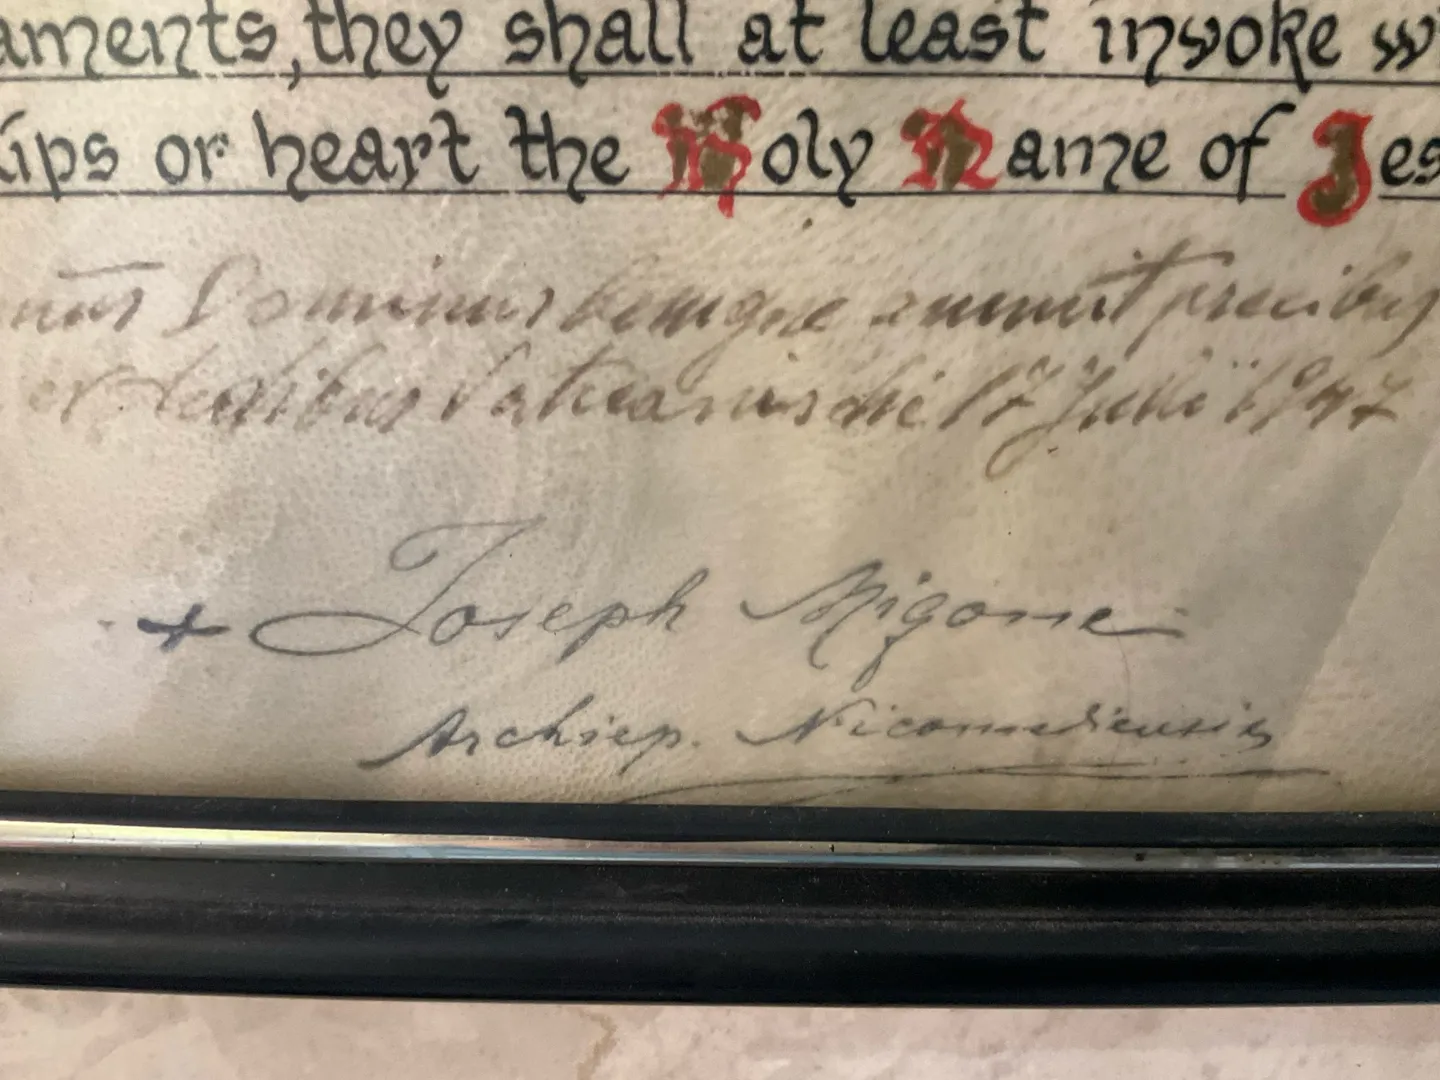 aments, they shall at least invoke w
lips or heart the Holy Name of Jes
Dominus benigne annuit precibus
ex Aedibus Vaticanis die 17 Julii 1947
+ Joseph Migone
Archiep. Nicomediensis